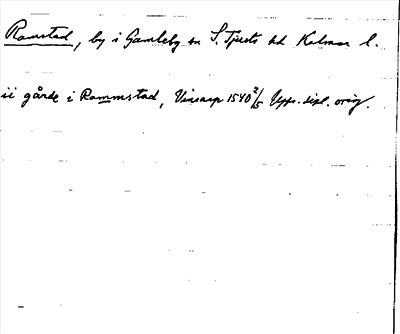 Ramstad, by i Gamleby sn S. Tjusts hd Kalmar l.
ii gårde i Rammstad, Vinsarp 1540 2/5 Upps. dipl. orig.